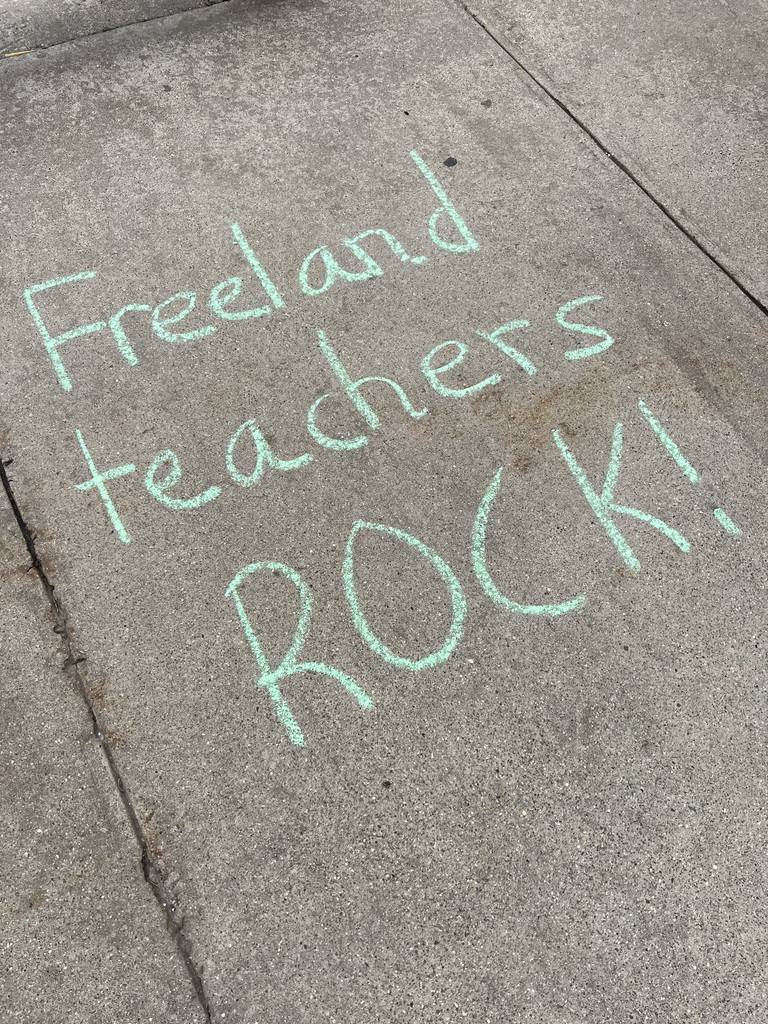 Freeland
teachers
ROCK!